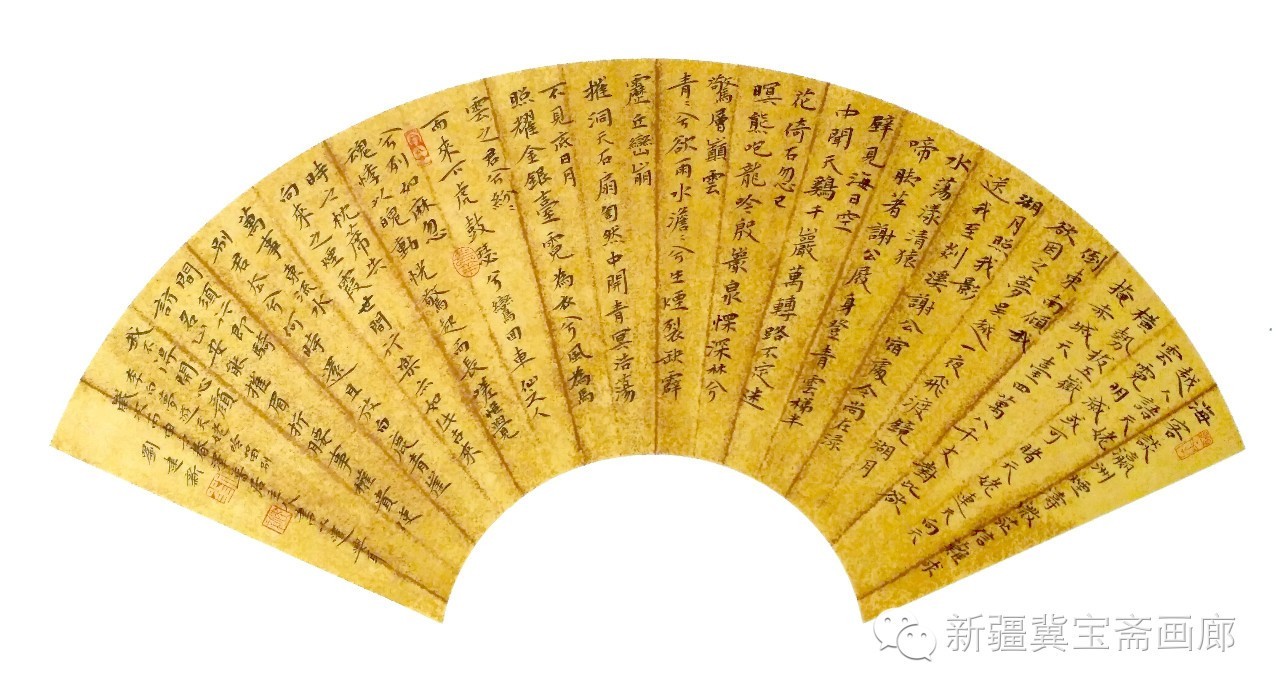 海客談瀛洲煙濤微茫信難求
越人語天姥
雲霓明滅或可睹天姥連天向天
橫勢拔五嶽
掩赤城天臺四萬八千丈對此欲
倒東南傾我
欲因之夢吳越一夜飛渡鏡湖月
湖月照我影
送我至剡溪謝公宿處今尚在淥
水蕩漾清猿
啼腳著謝公屐身登青雲梯半
壁見海日空
中聞天鷄千巖萬轉路不定迷
花倚石忽已
暝熊咆龍吟殷巖泉慄深林兮
驚層巔雲
青〻兮欲雨水澹〻兮生煙裂缺霹
靂丘巒崩
摧洞天石扇訇然中開青冥浩蕩
不見底日月
照耀金銀臺霓為衣兮風為馬
雲之君兮紛〻
而來下虎鼓瑟兮鸞回車仙之人
兮列如麻忽
魂悸以魄動恍驚起而長嗟惟覺
時之枕席失
向來之煙霞世間行樂亦如此古來
萬事東流水
別君去兮何時還且放白鹿青崖
間須行即騎
訪名山安能摧眉折腰事權貴使
我不得開心顏
李白夢遊天姥吟留別
劉建新
新疆冀宝斋画廊